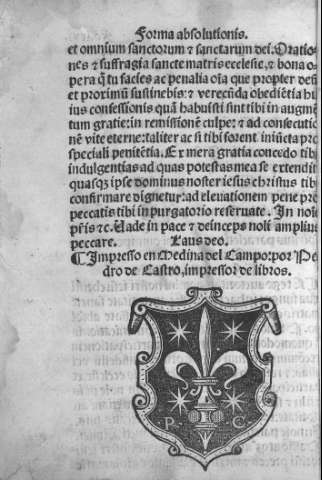 Forma absolutionis.
et omniũm sanctorum ⁊ sanctarum dei. Oratio-
nes ⁊ suffragia sancte matris ecclesie, ⁊ bona o-
pera q̃ tu facies ac penalia oĩa que propter deũ
et proximũ sustinebis: ⁊ verecũda obediẽtia hu
ius confessionis quã habuisti sunt tibi in augmẽ
tum gratie: in remissionẽ culpe: ⁊ ad consecutio
nẽ vite eterne: taliter ac si tibi forent iniũcta pro
speciali penitẽtia. Ex mera gratia concedo tibi
indulgentias ad quas potestas mea se extendit
quasqȝ ipse dominus noster iesus christus tibi
confirmare dignetur: ad eleuationem pene pro
peccatis tibi in purgatorio reseruate. In noĩe
pr̃is ⁊c. Uade in pace ⁊ deinceps noli amplius
peccare. Laus deo.
¶ Impresso en Medina del Campo: por Pe
dro de Castro, impressor de libros.
P. C